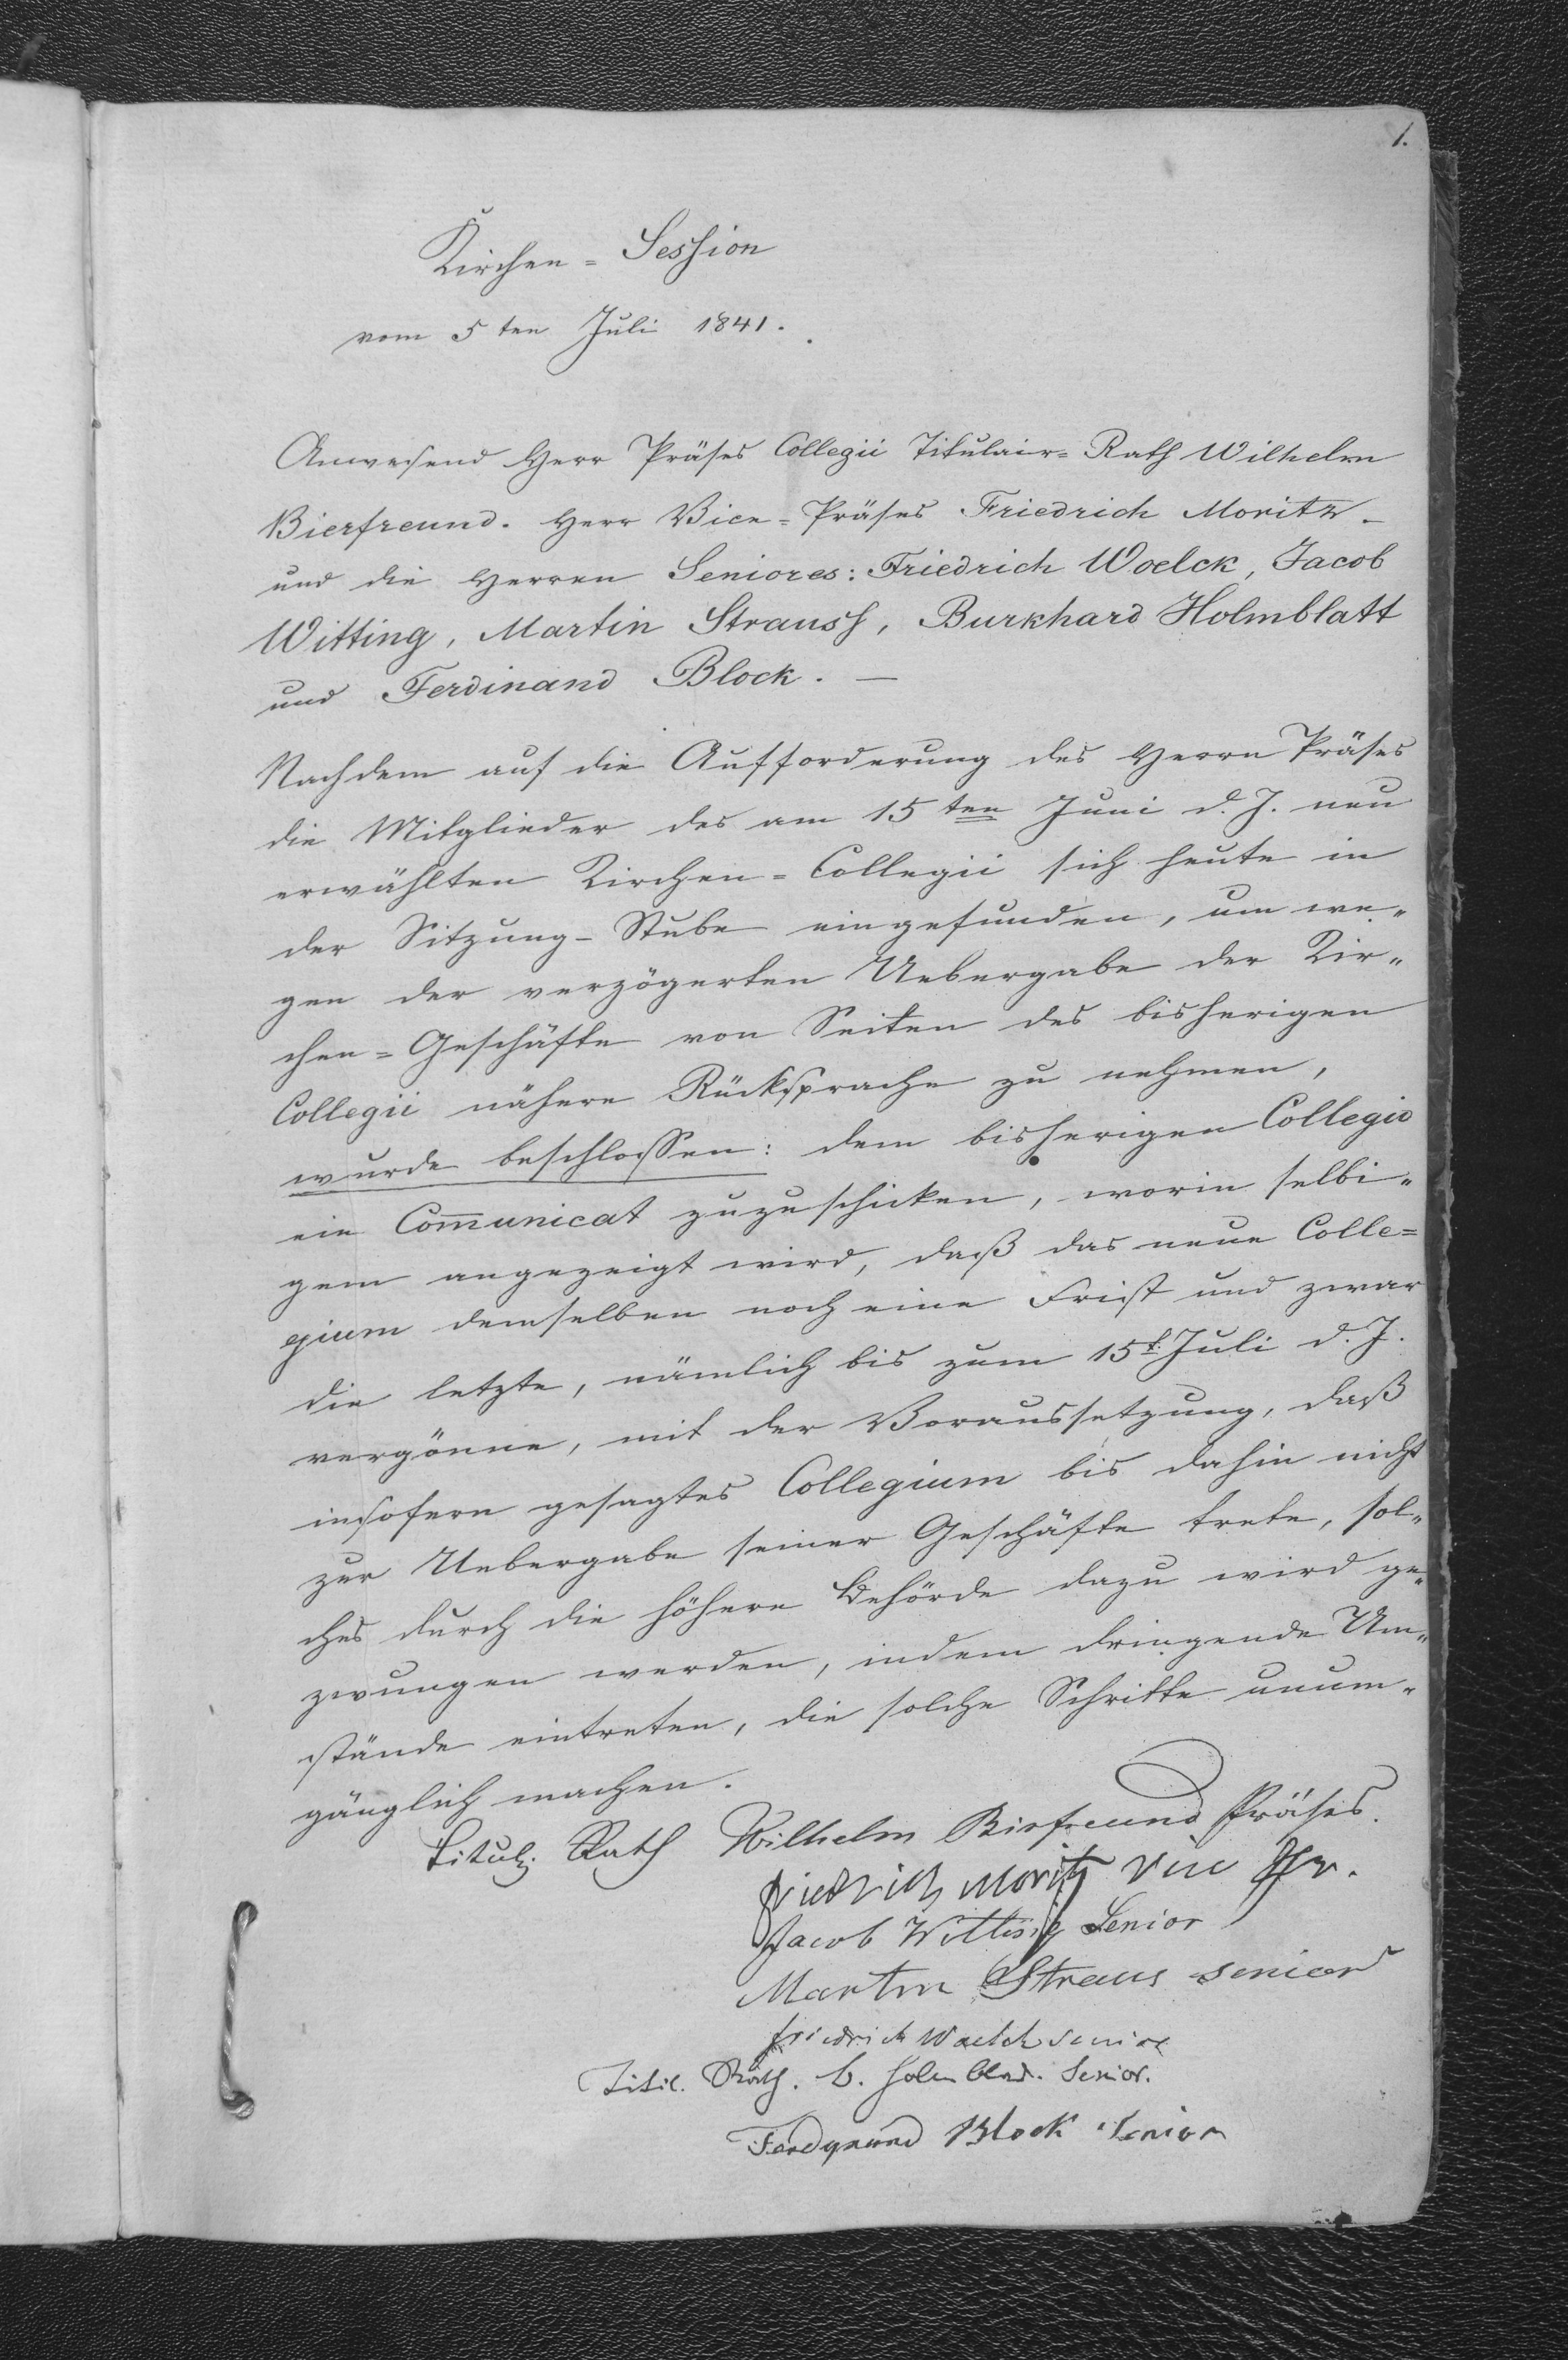 1.
Kirchen = Session
vom 5 ten Juli 1841.
Anwesend Herr Präses Collegii Titulair = Rath Wilhelm
Bierfreund. Herr Vice = Präses Friedrich Moritz _
und die Herren Seniores: Friedrich Woelck, Jacob
Witting, Martin Strauss, Burkhard Holmblatt
und Ferdinand Block. —
Nachdem auf die Aufforderung des Herrn Präses
die Mitglieder des am 15 ten Juni d. J. neu
erwählten Kirchen = Collegii sich heute in
der Sitzung - Stube eingefunden, um we„
gen der verzögerten Uebergabe der Kir„
chen = Geschäfte von Seiten des bisherigen
Collegii nähere Rücksprache zu nehmen,
wurde beschlossen: dem bisherigen Collegio
ein Com̅unicat zuzuschicken, worin selbi„
gem angezeigt wird, daß das neue Colle=
gium demselben noch eine Frist und zwar
die letzte, nämlich bis zum 15t. Juli d. J.
vergönne, mit der Voraussetzung, daß
insofern gesagtes Collegium bis dahin nicht
zur Uebergabe seiner Geschäfte trete, sol„
ches durch die höhere Behörde dazu wird ge„
zwungen werden, indem dringende Um„
stände eintreten, die solche Schritte unum„
gänglich machen.
Titul. Rath Wilhelm Birfreund Präses.
Friedrich Moritz Vice Pr.
Jacob Witting Senior
Martin Straus senior
Friedrich Woelck senior
Titil. Rath. B. Holmblad. Senior.
Ferdynand Block Senior